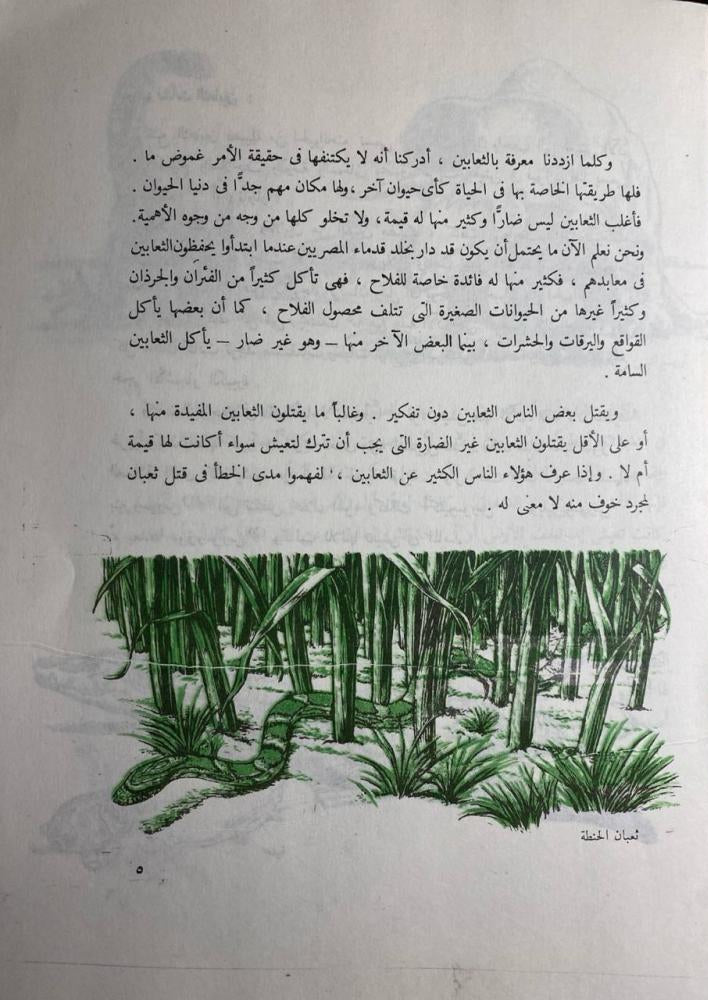 وكلما ازددنا معرفة بالثعابين ، أدركنا أنه لا يكتنفها فى حقيقة الأمر غموض ما .
فلها طريقتها الخاصة بها فى الحياة كأى حيوان آخر ، ولها مكان مهم جدًّا فى دنيا الحيوان .
فأغلب الثعابين ليس ضارًّا وكثير منها له قيمة ، ولا تخلو كلها من وجه من وجوه الأهمية .
ونحن نعلم الآن ما يحتمل أن يكون قد دار بخلد قدماء المصريين عندما ابتدأوا يحفظون الثعابين
فى معابدهم ، فكثير منها له فائدة خاصة للفلاح ، فهى تأكل كثيراً من الفئران والجرذان
وكثيراً غيرها من الحيوانات الصغيرة التى تتلف محصول الفلاح ، كما أن بعضها يأكل
القواقع واليرقات والحشرات ، بينما البعض الآخر منها – وهو غير ضار – يأكل الثعابين
السامة .
ويقتل بعض الناس الثعابين دون تفكير . وغالباً ما يقتلون الثعابين المفيدة منها ،
أو على الأقل يقتلون الثعابين غير الضارة التى يجب أن تترك لتعيش سواء أكانت لها قيمة
أم لا . وإذا عرف هؤلاء الناس الكثير عن الثعابين ، لفهموا مدى الخطأ فى قتل ثعبان
لمجرد خوف منه لا معنى له .
ثعبان الحنطة
٥